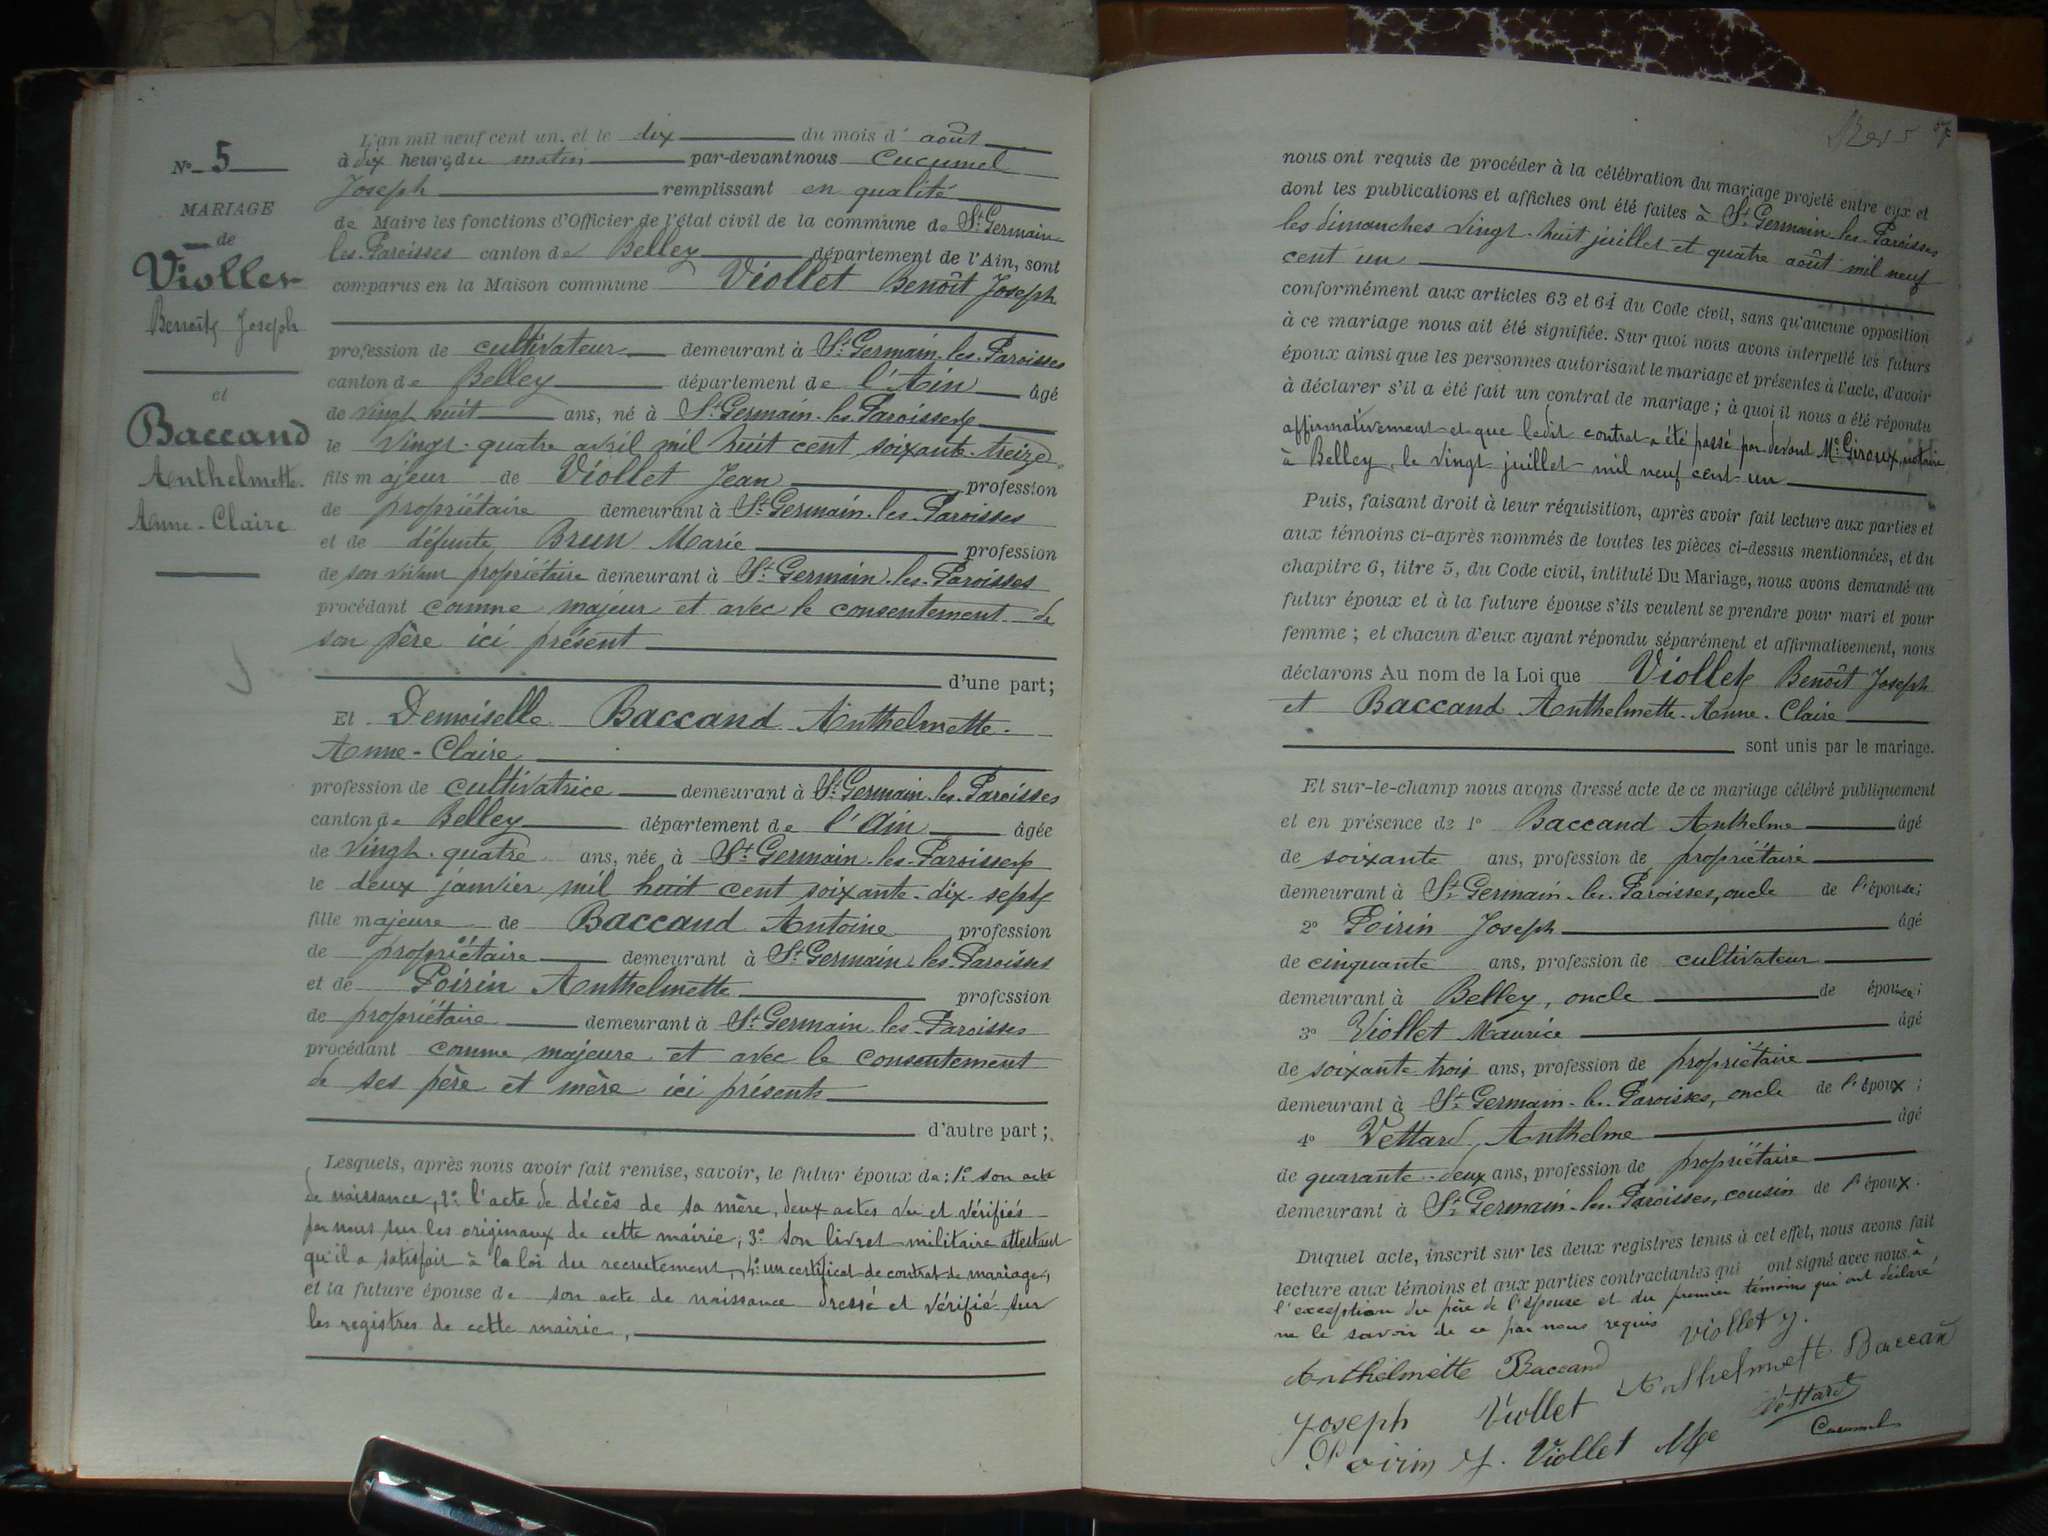 Nº 5
MARIAGE
de
Viollet
Benoît Joseph
et
Baccand
Anthelmette
Anne-Claire
L'an mil neuf cent un, et le dix du mois d' août
à dix heures du matin par-devant nous Cucumel
Joseph remplissant en qualité
de Maire les fonctions d'Officier de l'état civil de la commune de St Germain-
les-Paroisses canton de Belley département de l'Ain, sont
comparus en la Maison commune Viollet Benoît Joseph
profession de cultivateur demeurant à St Germain-les-Paroisses
canton de Belley département de l'Ain âgé
de vingt huit ans, né à St Germain-les-Paroisses
le vingt-quatre avril mil huit cent soixante-treize
fils majeur de Viollet Jean profession
de propriétaire demeurant à St Germain-les-Paroisses
et de défunte Brun Marie profession
de son vivant propriétaire demeurant à St Germain-les-Paroisses
procédant comme majeur et avec le consentement de
son père ici présent
d'une part;
Et Demoiselle Baccand Anthelmette-
Anne-Claire
profession de cultivatrice demeurant à St Germain-les-Paroisses
canton de Belley département de l'Ain âgée
de vingt-quatre ans, née à St Germain-les-Paroisses
le deux janvier mil huit cent soixante-dix-sept
fille majeure de Baccand Antoine profession
de propriétaire demeurant à St Germain-les-Paroisses
et de Poirin Anthelmette profession
de propriétaire demeurant à St Germain-les-Paroisses
procédant comme majeure et avec le consentement
de ses père et mère ici présents
d'autre part;
Lesquels, après nous avoir fait remise, savoir, le futur époux de: 1º son acte
de naissance, 2º l'acte de décès de sa mère, deux actes vu et vérifiés
par nous sur les originaux de cette mairie, 3º son livret militaire attestant
qu'il a satisfait à la loi du recrutement, 4º un certificat de contrat de mariage,
et la future épouse de son acte de naissance dressé et vérifié sur
les registres de cette mairie,
nous ont requis de procéder à la célébration du mariage projeté entre eux et
dont les publications et affiches ont été faites à St Germain-les-Paroisses
les dimanches vingt-huit juillet et quatre août mil neuf
cent un
conformément aux articles 63 et 64 du Code civil, sans qu'aucune opposition
à ce mariage nous ait été signifiée. Sur quoi nous avons interpellé les futurs
époux ainsi que les personnes autorisant le mariage et présentes à l'acte, d'avoir
à déclarer s'il a été fait un contrat de mariage; à quoi il nous a été répondu
affirmativement et que ledit contrat a été passé par devant Me Giroux, notaire
à Belley, le vingt juillet mil neuf cent un
Puis, faisant droit à leur réquisition, après avoir fait lecture aux parties et
aux témoins ci-après nommés de toutes les pièces ci-dessus mentionnées, et du
chapitre 6, titre 5, du Code civil, intitulé Du Mariage, nous avons demandé au
futur époux et à la future épouse s'ils veulent se prendre pour mari et pour
femme; et chacun d'eux ayant répondu séparément et affirmativement, nous
déclarons Au nom de la Loi que Viollet Benoît Joseph
et Baccand Anthelmette-Anne-Claire
sont unis par le mariage.
Et sur-le-champ nous avons dressé acte de ce mariage célébré publiquement
et en présence de 1º Baccand Anthelme âgé
de soixante ans, profession de propriétaire
demeurant à St Germain-les-Paroisses, oncle de l'épouse;
2º Poirin Joseph âgé
de cinquante ans, profession de cultivateur
demeurant à Belley, oncle de épouse;
3º Viollet Maurice âgé
de soixante-trois ans, profession de propriétaire
demeurant à St Germain-les-Paroisses, oncle de l'époux;
4º Vettard Anthelme âgé
de quarante-deux ans, profession de propriétaire
demeurant à St Germain-les-Paroisses, cousin de l'époux.
Duquel acte, inscrit sur les deux registres tenus à cet effet, nous avons fait
lecture aux témoins et aux parties contractantes qui ont signé avec nous à
l'exception du père de l'épouse et du premier témoin qui ont déclaré
ne le savoir de ce par nous requis
Viollet J.
Anthelmette Baccand
Anthelmett Baccan
Joseph Viollet
Vettard
Poirin J. Viollet Mce
Cucumel